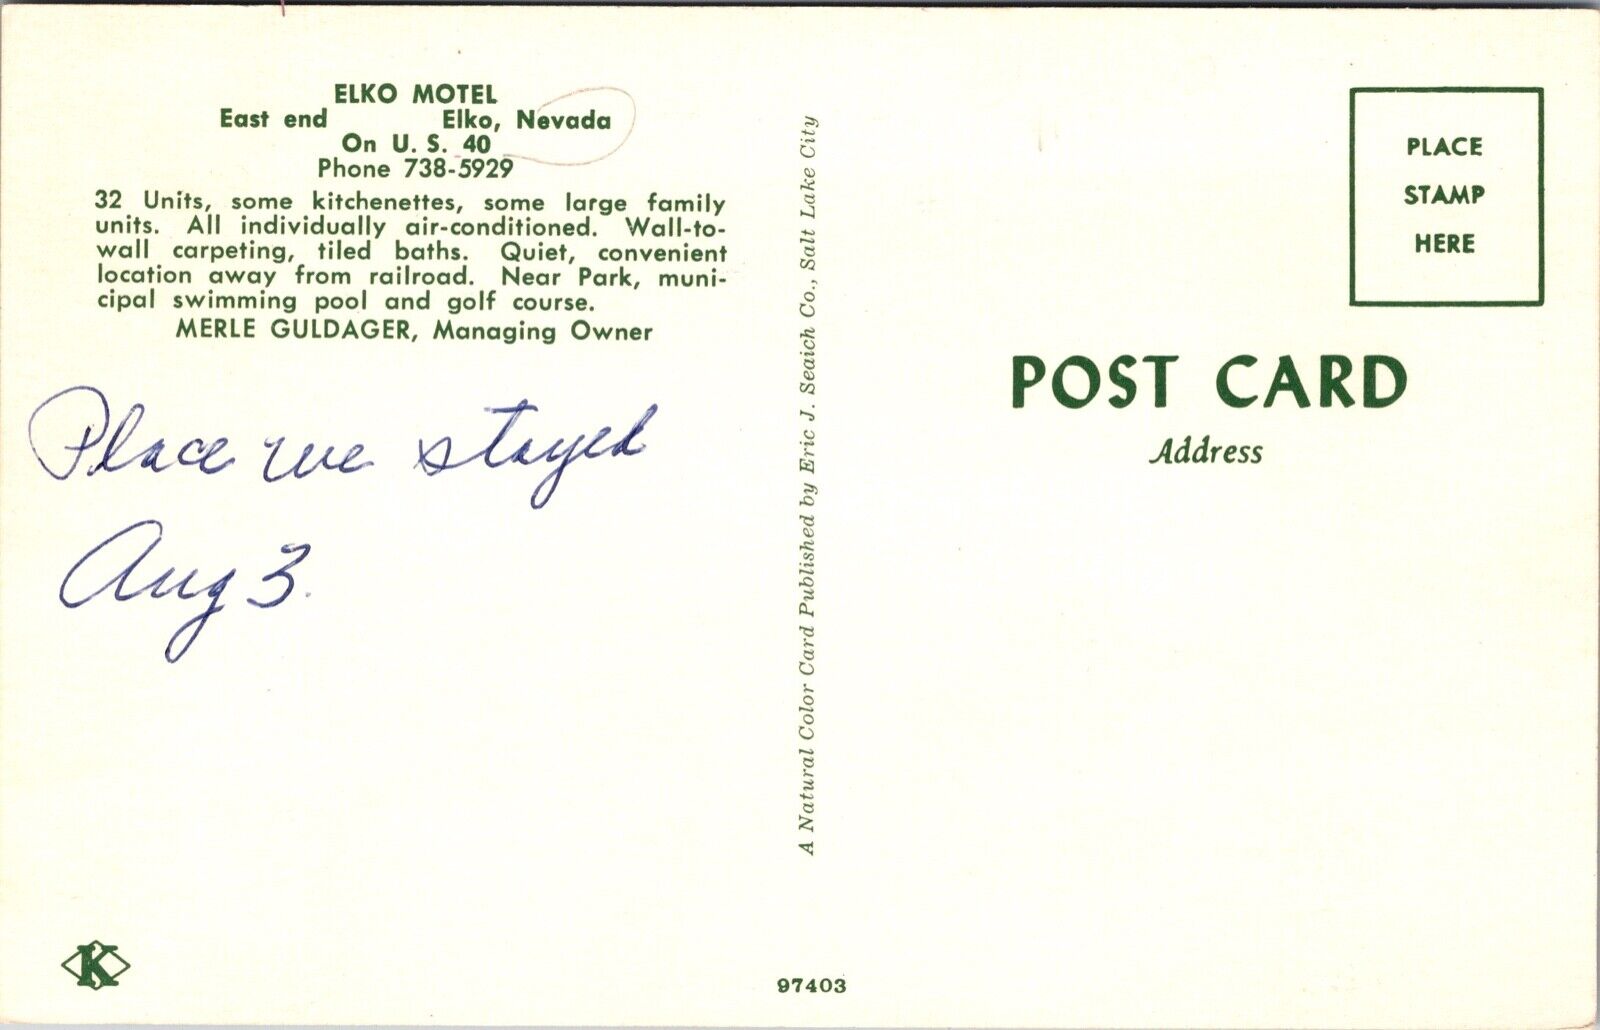 ELKO MOTEL
East end Elko, Nevada
On U. S. 40
Phone 738-5929
32 Units, some kitchenettes, some large family
units. All individually air-conditioned. Wall-to-
wall carpeting, tiled baths. Quiet, convenient
location away from railroad. Near Park, muni-
cipal swimming pool and golf course.
MERLE GULDAGER, Managing Owner
Place we stayed
Aug 3.
K
A Natural Color Card Published by Eric J. Seaich Co., Salt Lake City
97403
PLACE
STAMP
HERE
POST CARD
Address